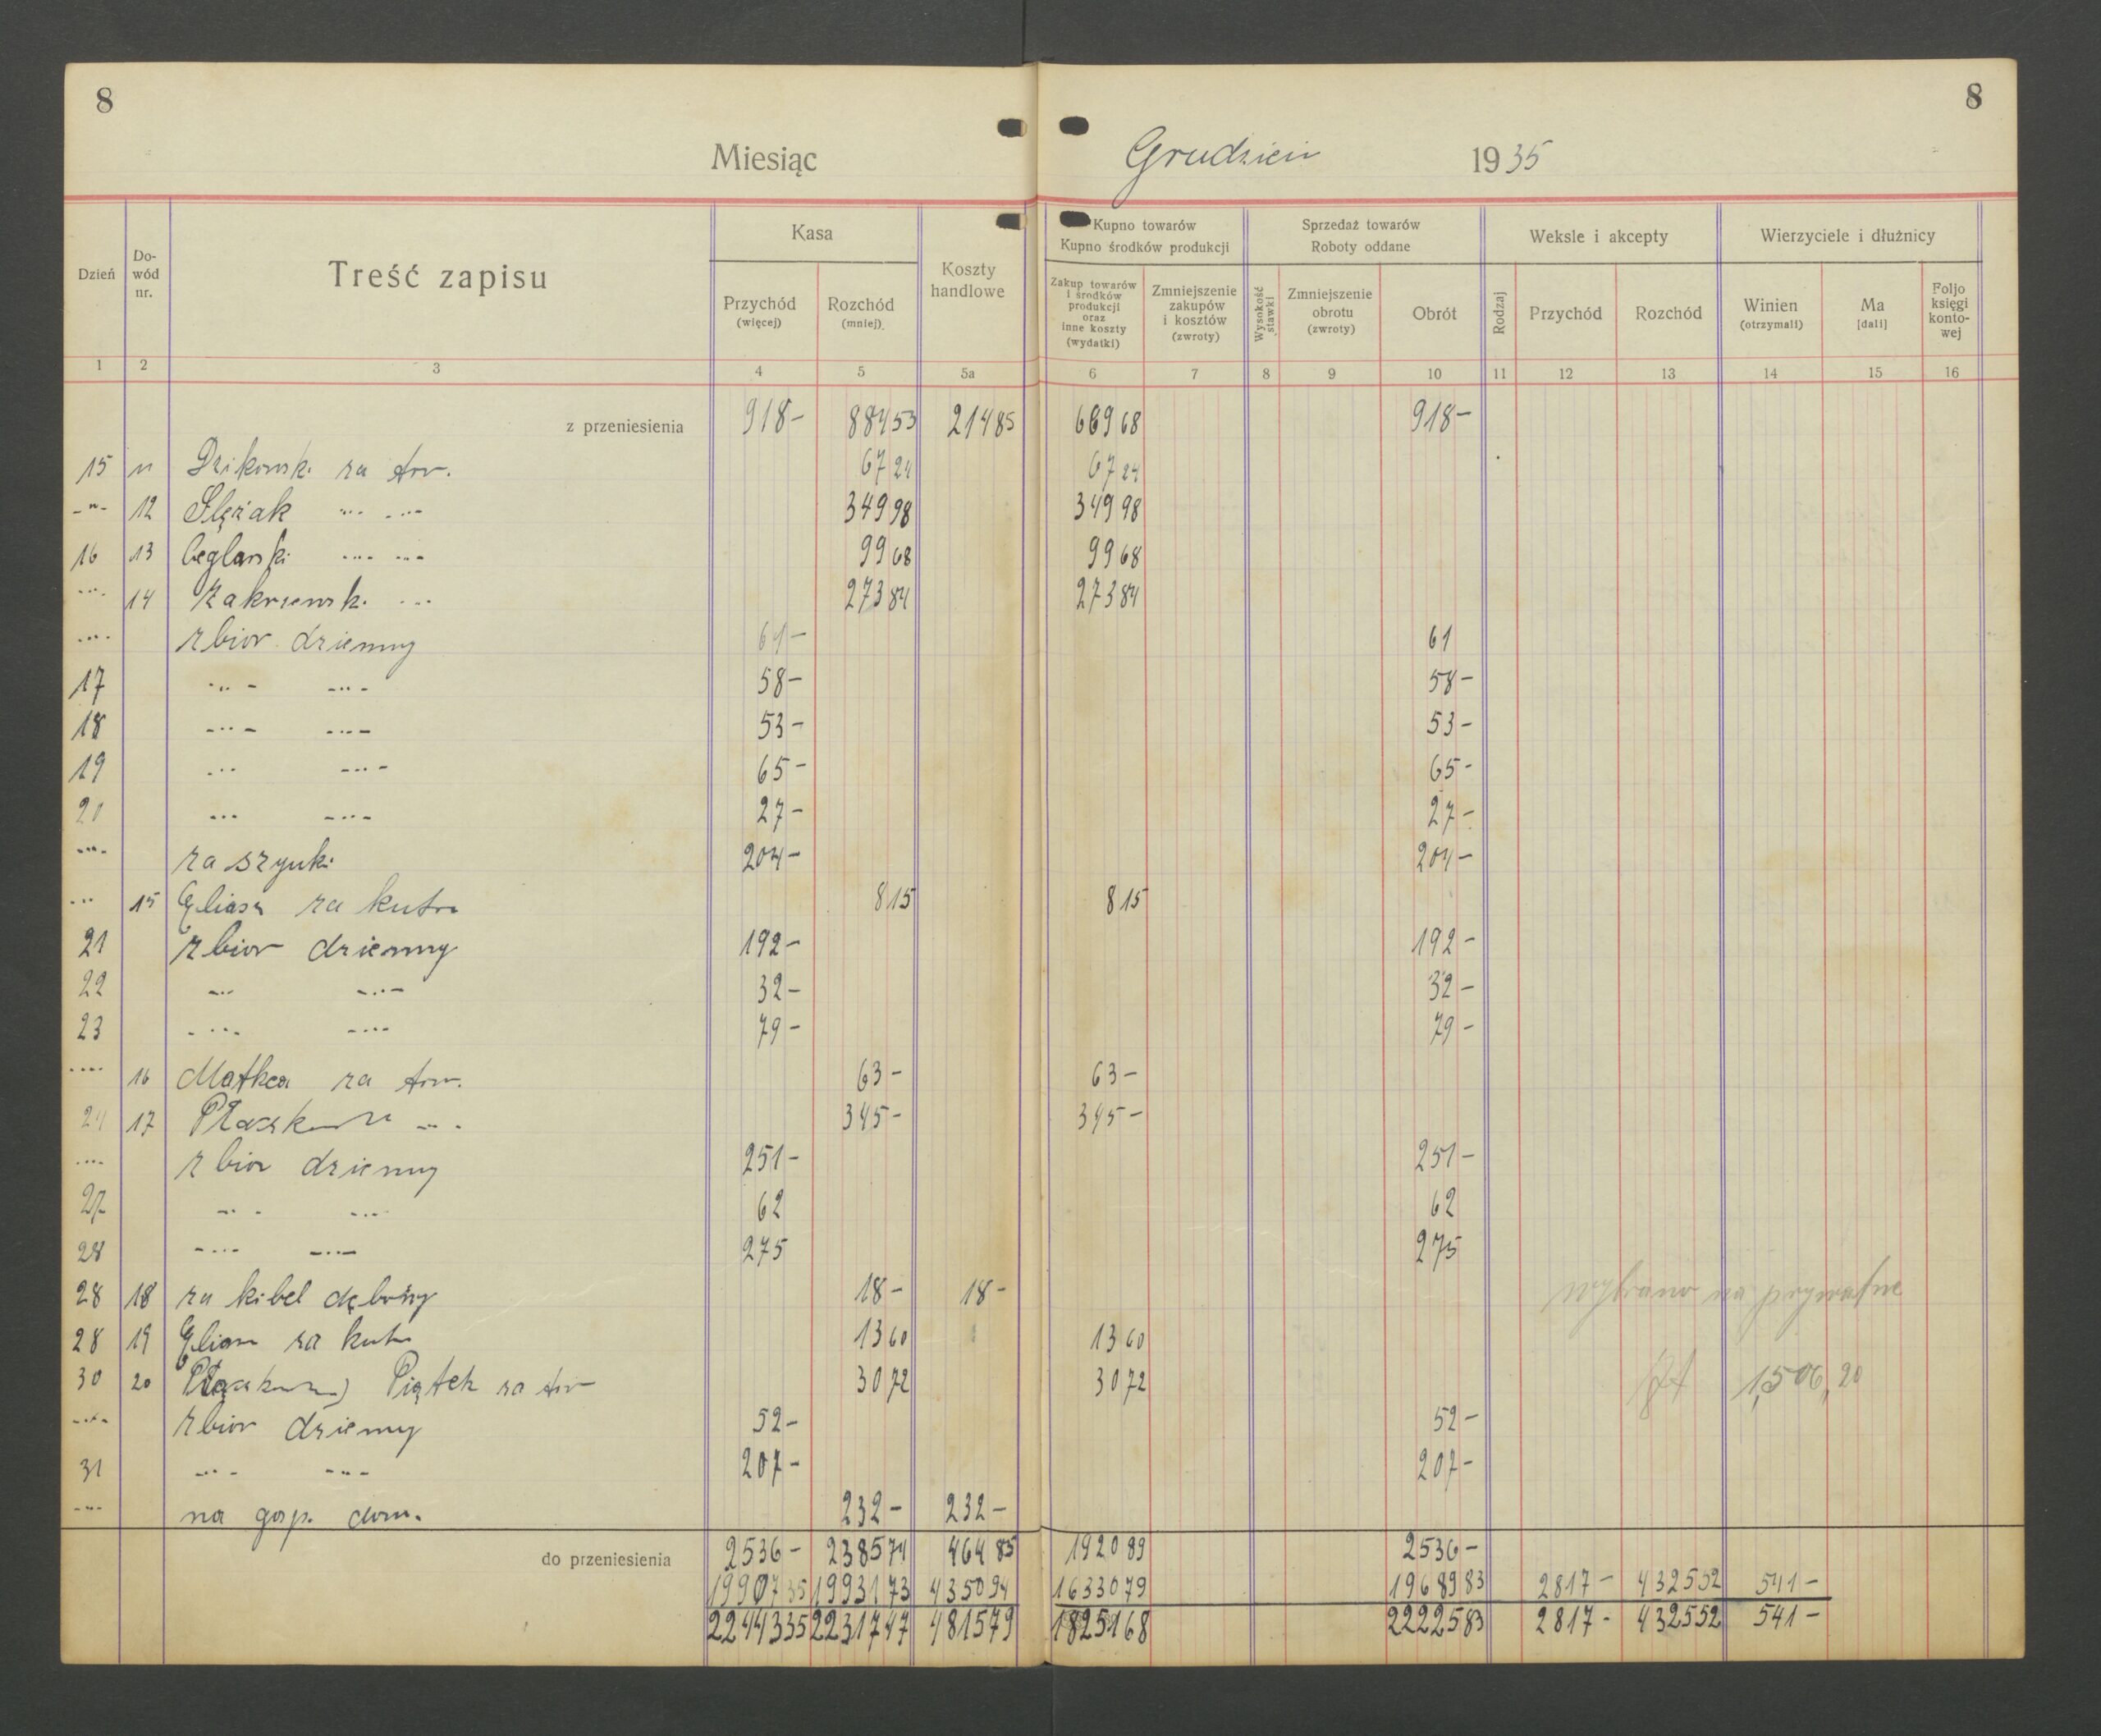 8 8
Miesiąc Grudzień 1935
Dzień Do-wód nr. Treść zapisu Kasa Koszty handlowe Kupno towarów Kupno środków produkcji Sprzedaż towarów Roboty oddane Weksle i akcepty Wierzyciele i dłużnicy
Przychód (więcej) Rozchód (mniej) Zakup towarów i środków produkcji oraz inne koszty (wydatki) Zmniejszenie zakupów i kosztów (zwroty) Wysokość stawki Zmniejszenie obrotu (zwroty) Obrót Rodzaj Przychód Rozchód Winien (otrzymali) Ma [dali] Foljo księgi konto-wej
1 2 3 4 5 5a 6 7 8 9 10 11 12 13 14 15 16
z przeniesienia 918- 884 53 214 85 669 68 918-
15 11 Dzikowski za tow. 67 24 67 24
-"- 12 Ślęzak -"- -"- 349 98 349 98
16 13 Ceglarski -"- -"- 99 68 99 68
-"- 14 Zakrzewski -"- 273 84 273 84
-"- zbior dzienny 61- 61
17 -"- -"- 58- 58-
18 -"- -"- 53- 53-
19 -"- -"- 65- 65-
20 -"- -"- 27- 27-
-"- za szynki 204- 204-
-"- 15 za 8 15 8 15
21 zbior dzienny 192- 192-
22 -"- -"- 32- 32-
23 -"- -"- 79- 79-
-"- 16 Matkea za tow. 63- 63-
24 17 -"- 345- 345-
-"- zbior dzienny 251- 251-
27 -"- -"- 62 62
28 -"- -"- 275 275
28 18 za kibel dębowy 18- 18- wybrano na prywatne
28 19 za 13 60 13 60
30 20 Piątek za tow 30 72 30 72 zł 1,506,20
-"- zbior dzienny 52- 52-
31 -"- -"- 207- 207-
-"- na gosp. dom. 232- 232-
do przeniesienia 2536- 2385 74 464 85 1920 89 2536-
19907 35 19931 73 4350 94 16330 79 19689 83 2817- 4325 52 541-
22443 35 22317 47 4815 79 18251 68 22225 83 2817- 4325 52 541-